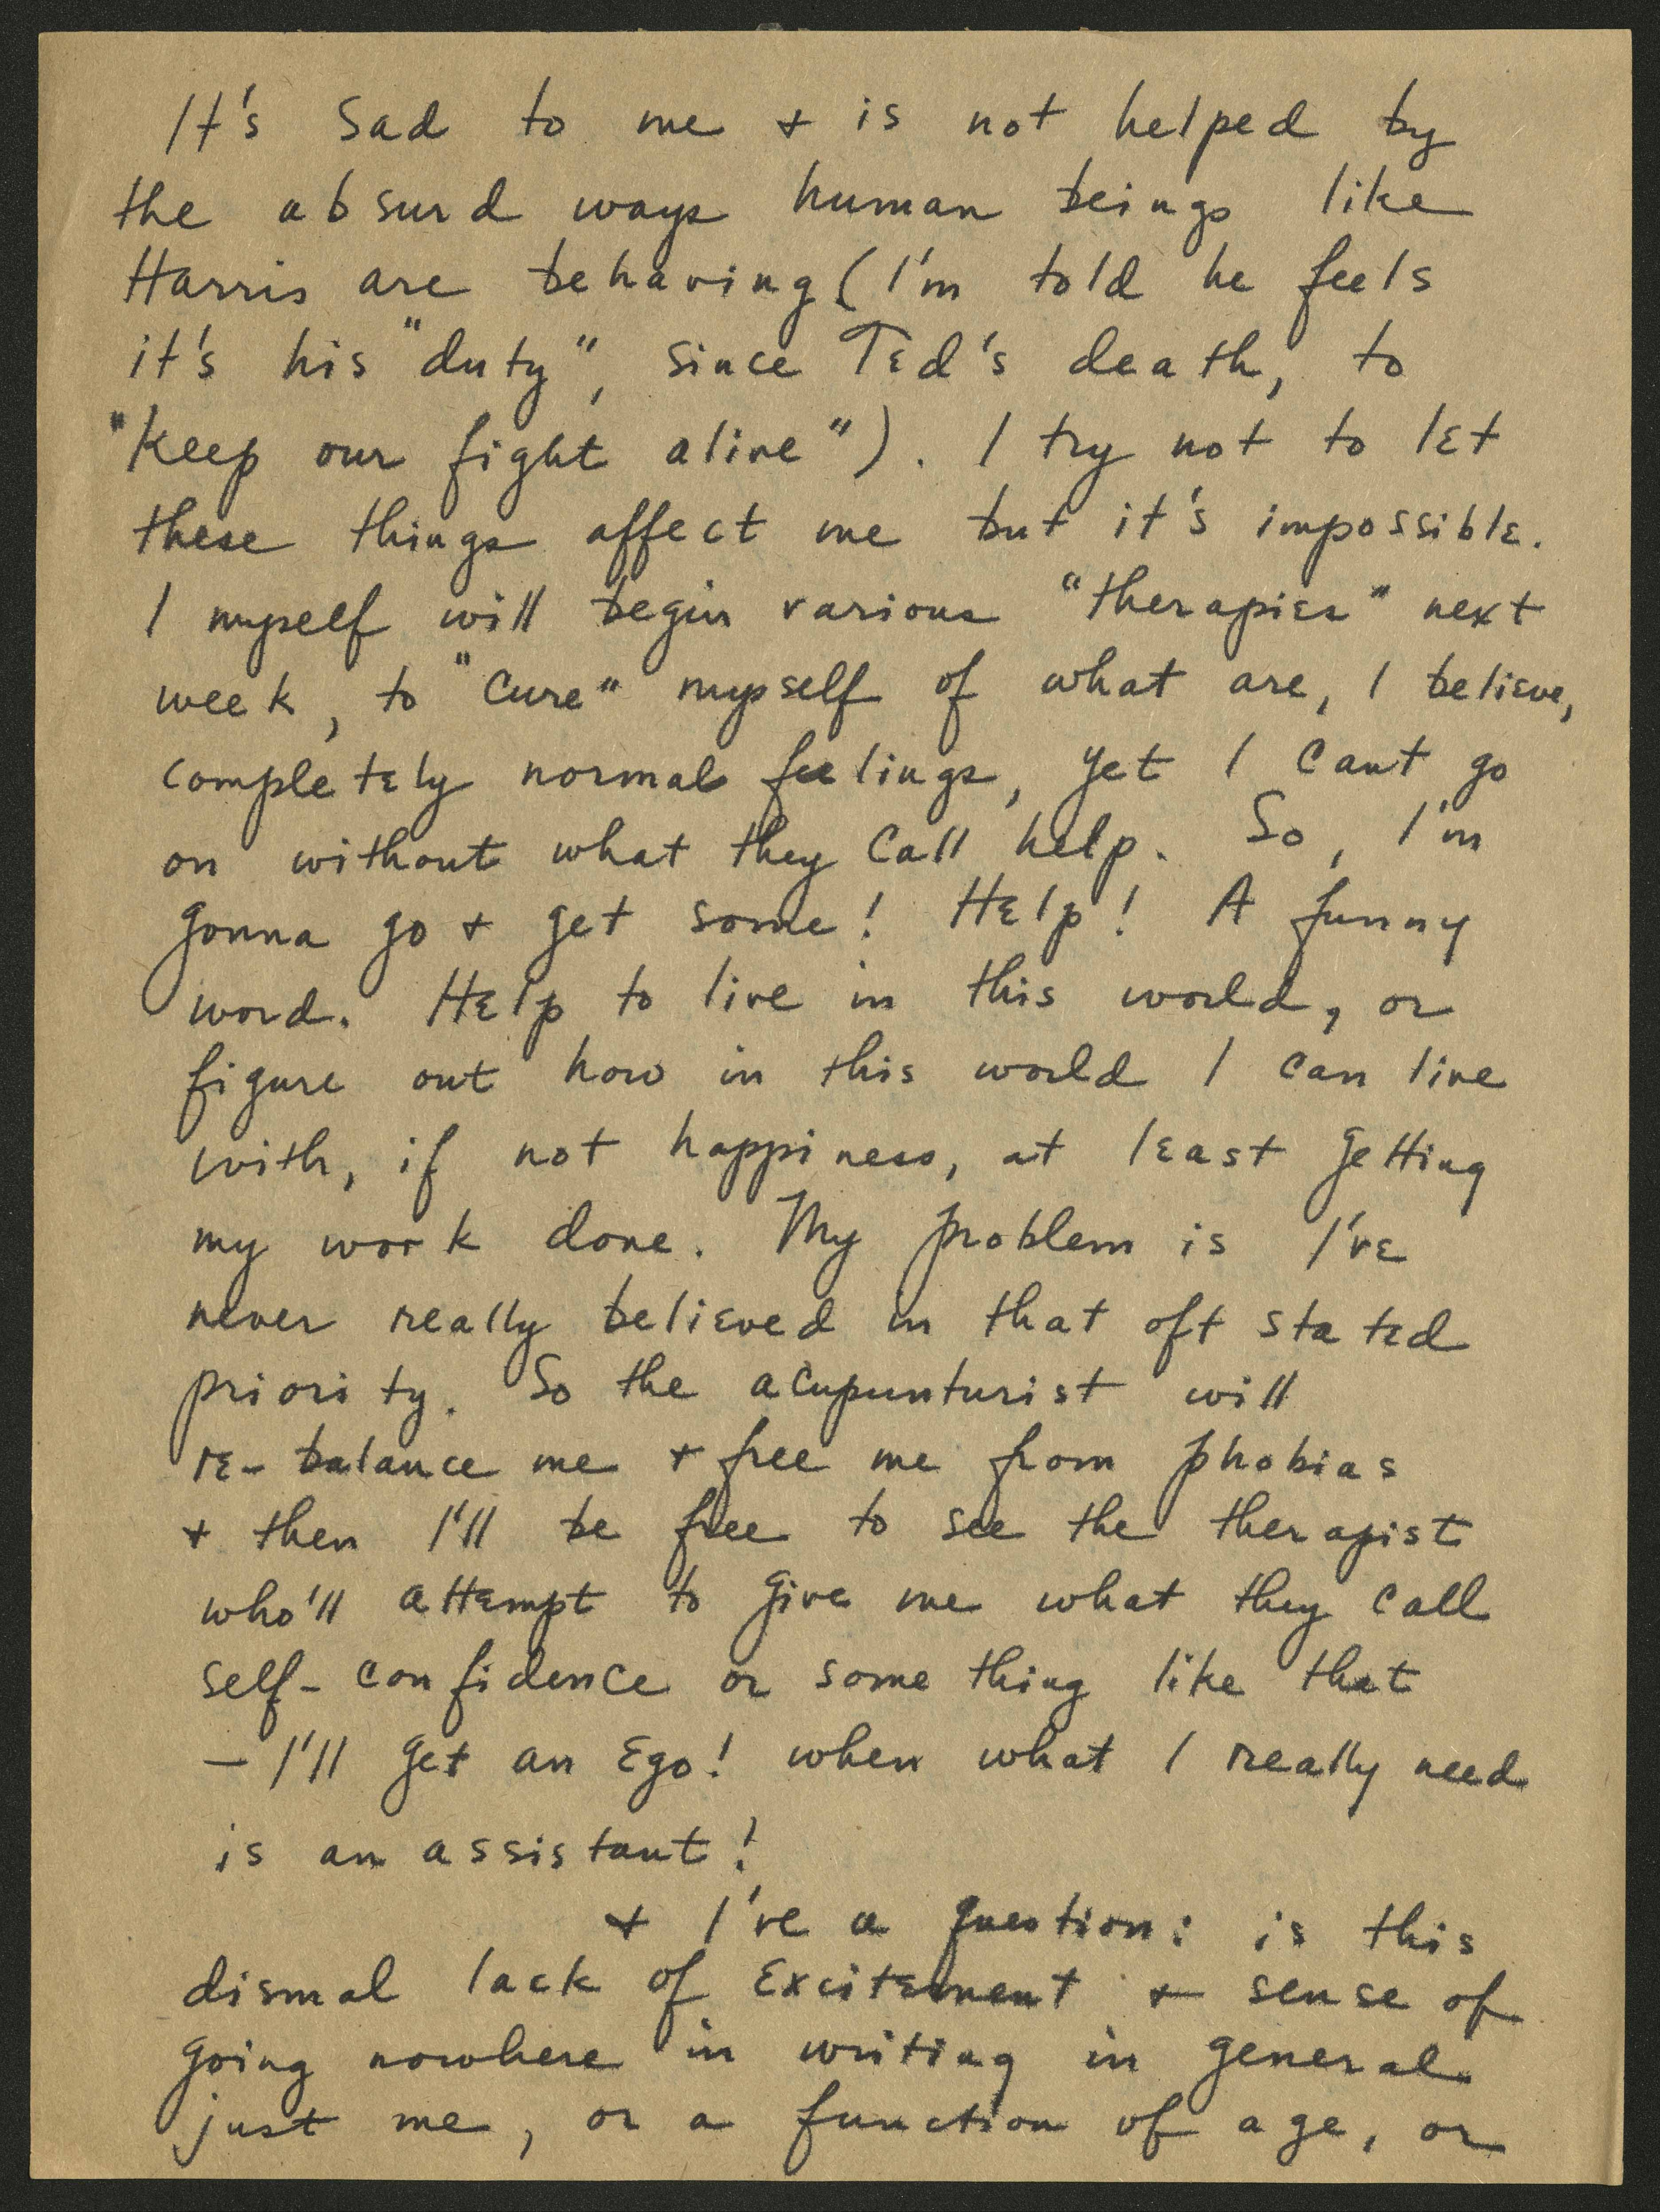 It's sad to me + is not helped by
the absurd ways human beings like
Harris are behaving (I'm told he feels
it's his "duty", since Ted's death, to
"keep our fight alive"). I try not to let
these things affect me but it's impossible.
I myself will begin various "therapies" next
week, to "cure" myself of what are, I believe,
completely normal feelings, yet I cant go
on without what they call help. So, I'm
gonna go + get some! Help! A funny
word. Help to live in this world, or
figure out how in this world I can live
with, if not happiness, at least getting
my work done. My problem is I've
never really believed in that oft stated
priority. So the acupunturist will
re-balance me + free me from phobias
+ then I'll be free to see the therapist
who'll attempt to give me what they call
self-confidence or something like that
– I'll get an Ego! when what I really need
is an assistant!
+ I've a question: is this
dismal lack of excitement + sense of
going nowhere in writing in general
just me, or a function of age, or